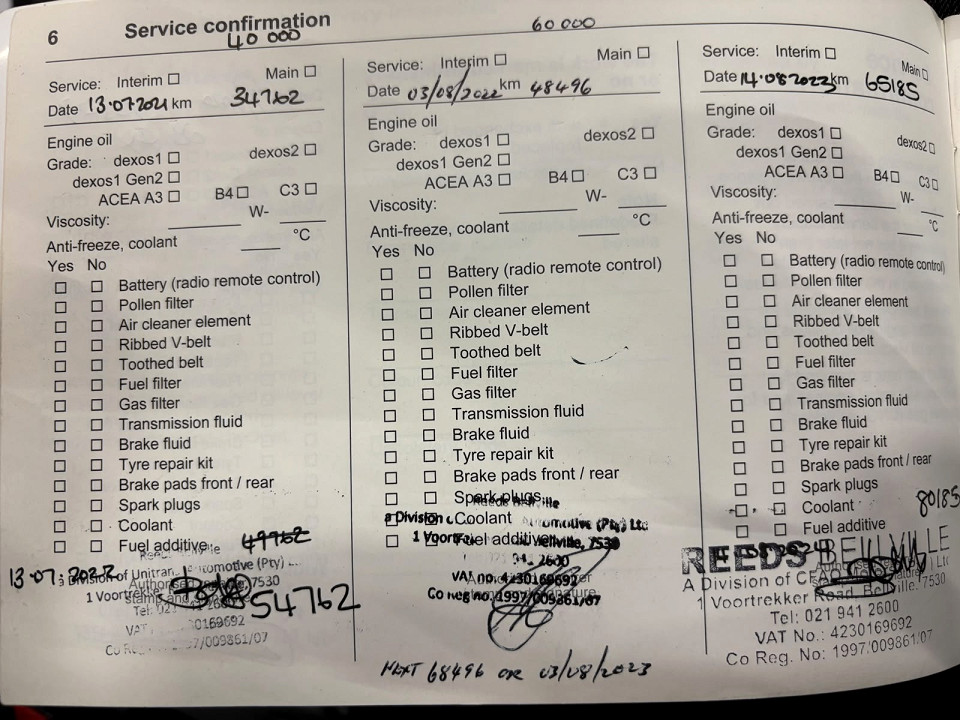 6 Service confirmation
40 000
60 000
Service: Interim Main
Date 13.07.2021 km 34762
Engine oil
Grade: dexos1 dexos2
dexos1 Gen2
ACEA A3 B4 C3
Viscosity: W-
Anti-freeze, coolant °C
Yes No
Battery (radio remote control)
Pollen filter
Air cleaner element
Ribbed V-belt
Toothed belt
Fuel filter
Gas filter
Transmission fluid
Brake fluid
Tyre repair kit
Brake pads front / rear
Spark plugs
Coolant
Fuel additive 49762
13.07.2022
Division of Unitran
1 Voortrekker 7530
54762
Tel: 021 941 2600
Service: Interim Main
Date 03/08/2022 km 48496
Engine oil
Grade: dexos1 dexos2
dexos1 Gen2
ACEA A3 B4 C3
Viscosity: W-
Anti-freeze, coolant °C
Yes No
Battery (radio remote control)
Pollen filter
Air cleaner element
Ribbed V-belt
Toothed belt
Fuel filter
Gas filter
Transmission fluid
Brake fluid
Tyre repair kit
Brake pads front / rear
Spark plugs
Coolant
Fuel additive
VAT no. 4230169692
Co reg no. 1997/009861/07
NEXT 68496 OR 03/08/2023
Service: Interim Main
Date 14.08.2023 km 65185
Engine oil
Grade: dexos1 dexos2
dexos1 Gen2
ACEA A3 B4 C3
Viscosity: W-
Anti-freeze, coolant °C
Yes No
Battery (radio remote control)
Pollen filter
Air cleaner element
Ribbed V-belt
Toothed belt
Fuel filter
Gas filter
Transmission fluid
Brake fluid
Tyre repair kit
Brake pads front / rear
Spark plugs
Coolant 80185
Fuel additive
REEDS BELLVILLE
A Division of
1 Voortrekker Road, Bellville, 7530
Tel: 021 941 2600
VAT No.: 4230169692
Co Reg. No: 1997/009861/07